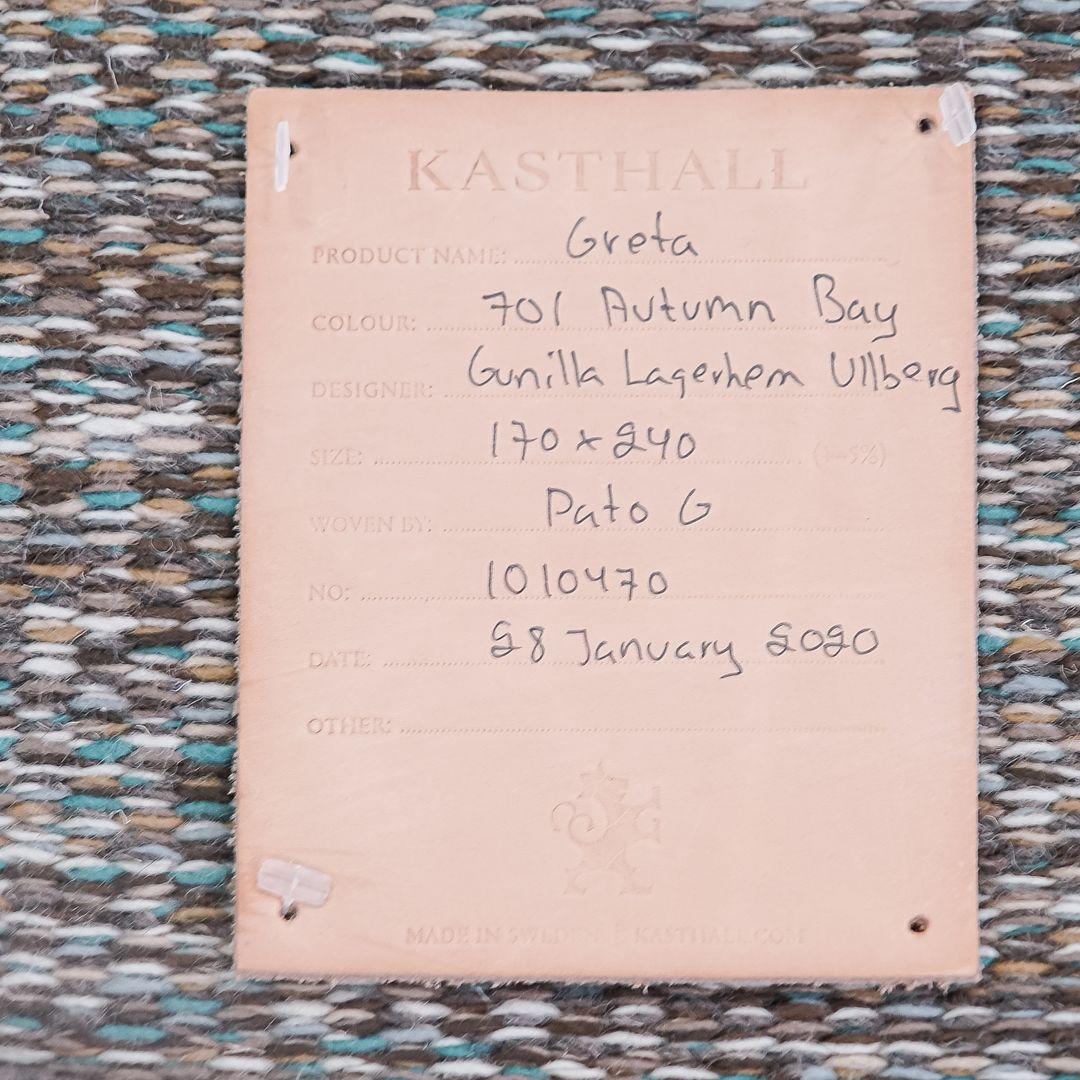 KASTHALL
PRODUCT NAME: Greta
COLOUR: 701 Autumn Bay
DESIGNER: Gunilla Lagerhem Ullberg
SIZE: 170 x 240 (+-5%)
WOVEN BY: Pato G
NO: 1010470
DATE: 28 January 2020
OTHER:
MADE IN SWEDEN | KASTHALL.COM